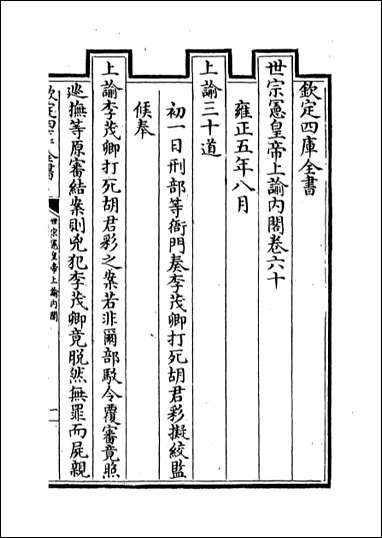 欽定四庫全書
世宗憲皇帝上諭內閣卷六十
雍正五年八月
上諭三十道
初一日刑部等衙門奏李茂卿打死胡君彩擬絞監
候奉
上諭李茂卿打死胡君彩之案若非爾部駁令覆審竟照
巡撫等原審結案則兇犯李茂卿竟脫然無罪而屍親
欽定四庫全書
世宗憲皇帝上諭內閣
一